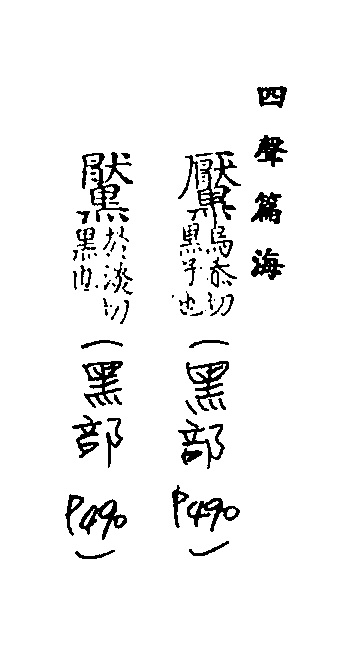 四聲篇海
黶烏忝切黑子也(黑部P490)
於淡切黑也(黑部P490)